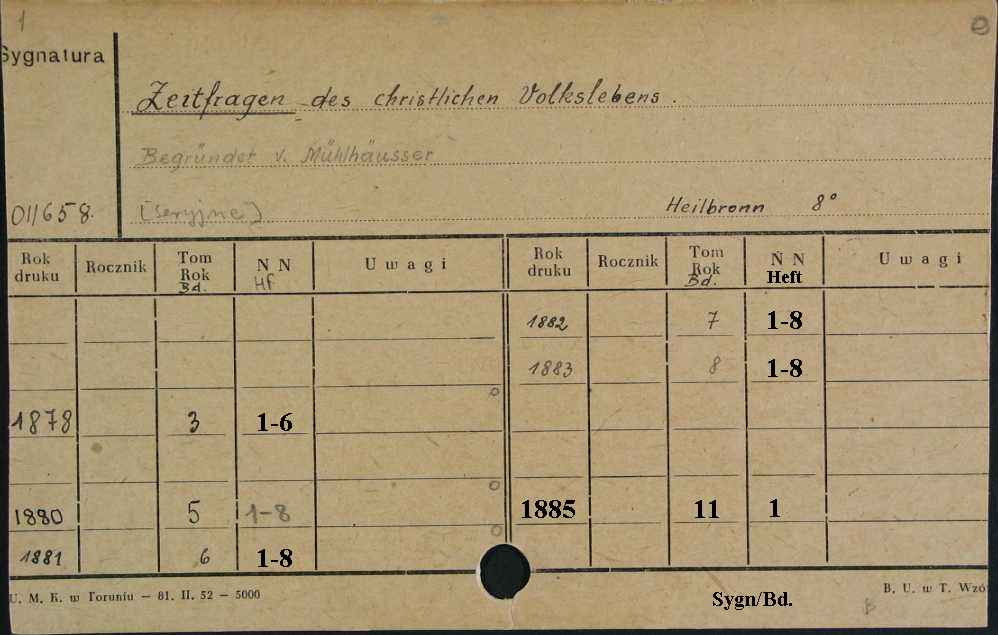 1
e
Sygnatura
Zeitfragen des christlichen Volkslebens.
Begründet v. Mühlhäusser
011658. [Seryjne] Heilbronn 8°
Rok druku Rocznik Tom Rok Bd. N N Hf Uwagi Rok druku Rocznik Tom Rok Bd. N N Heft Uwagi
1882 7 1-8
1883 8 1-8
1878 3 1-6
1880 5 1-8 1885 11 1
1881 6 1-8
U. M. K. w Toruniu — 81. II. 52 — 5000
B. U. w T. Wzó
Sygn/Bd.
B